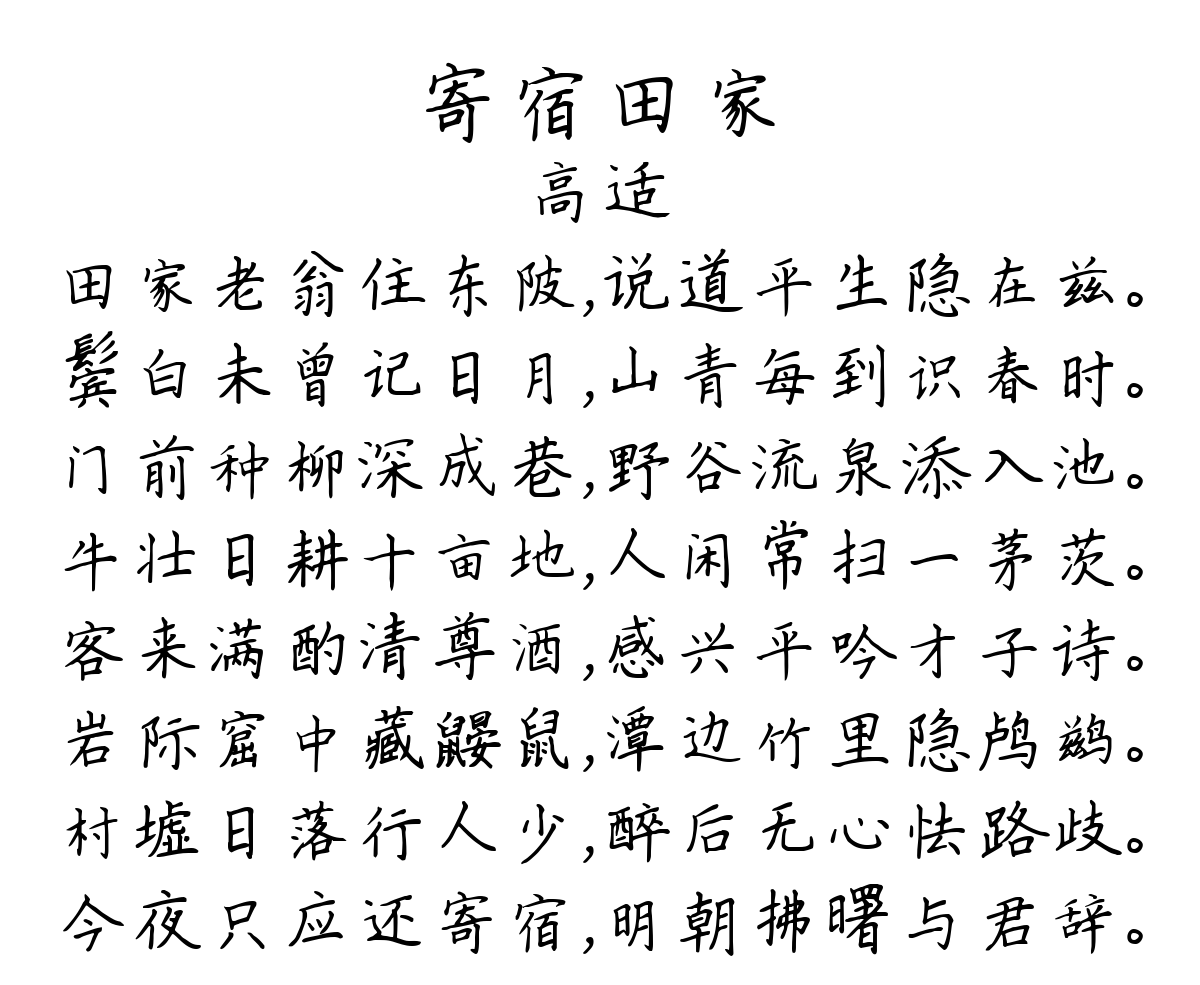 寄宿田家
高适
田家老翁住东陂,说道平生隐在兹。
鬓白未曾记日月,山青每到识春时。
门前种柳深成巷,野谷流泉添入池。
牛壮日耕十亩地,人闲常扫一茅茨。
客来满酌清尊酒,感兴平吟才子诗。
岩际窟中藏鼹鼠,潭边竹里隐鸬鹚。
村墟日落行人少,醉后无心怯路歧。
今夜只应还寄宿,明朝拂曙与君辞。